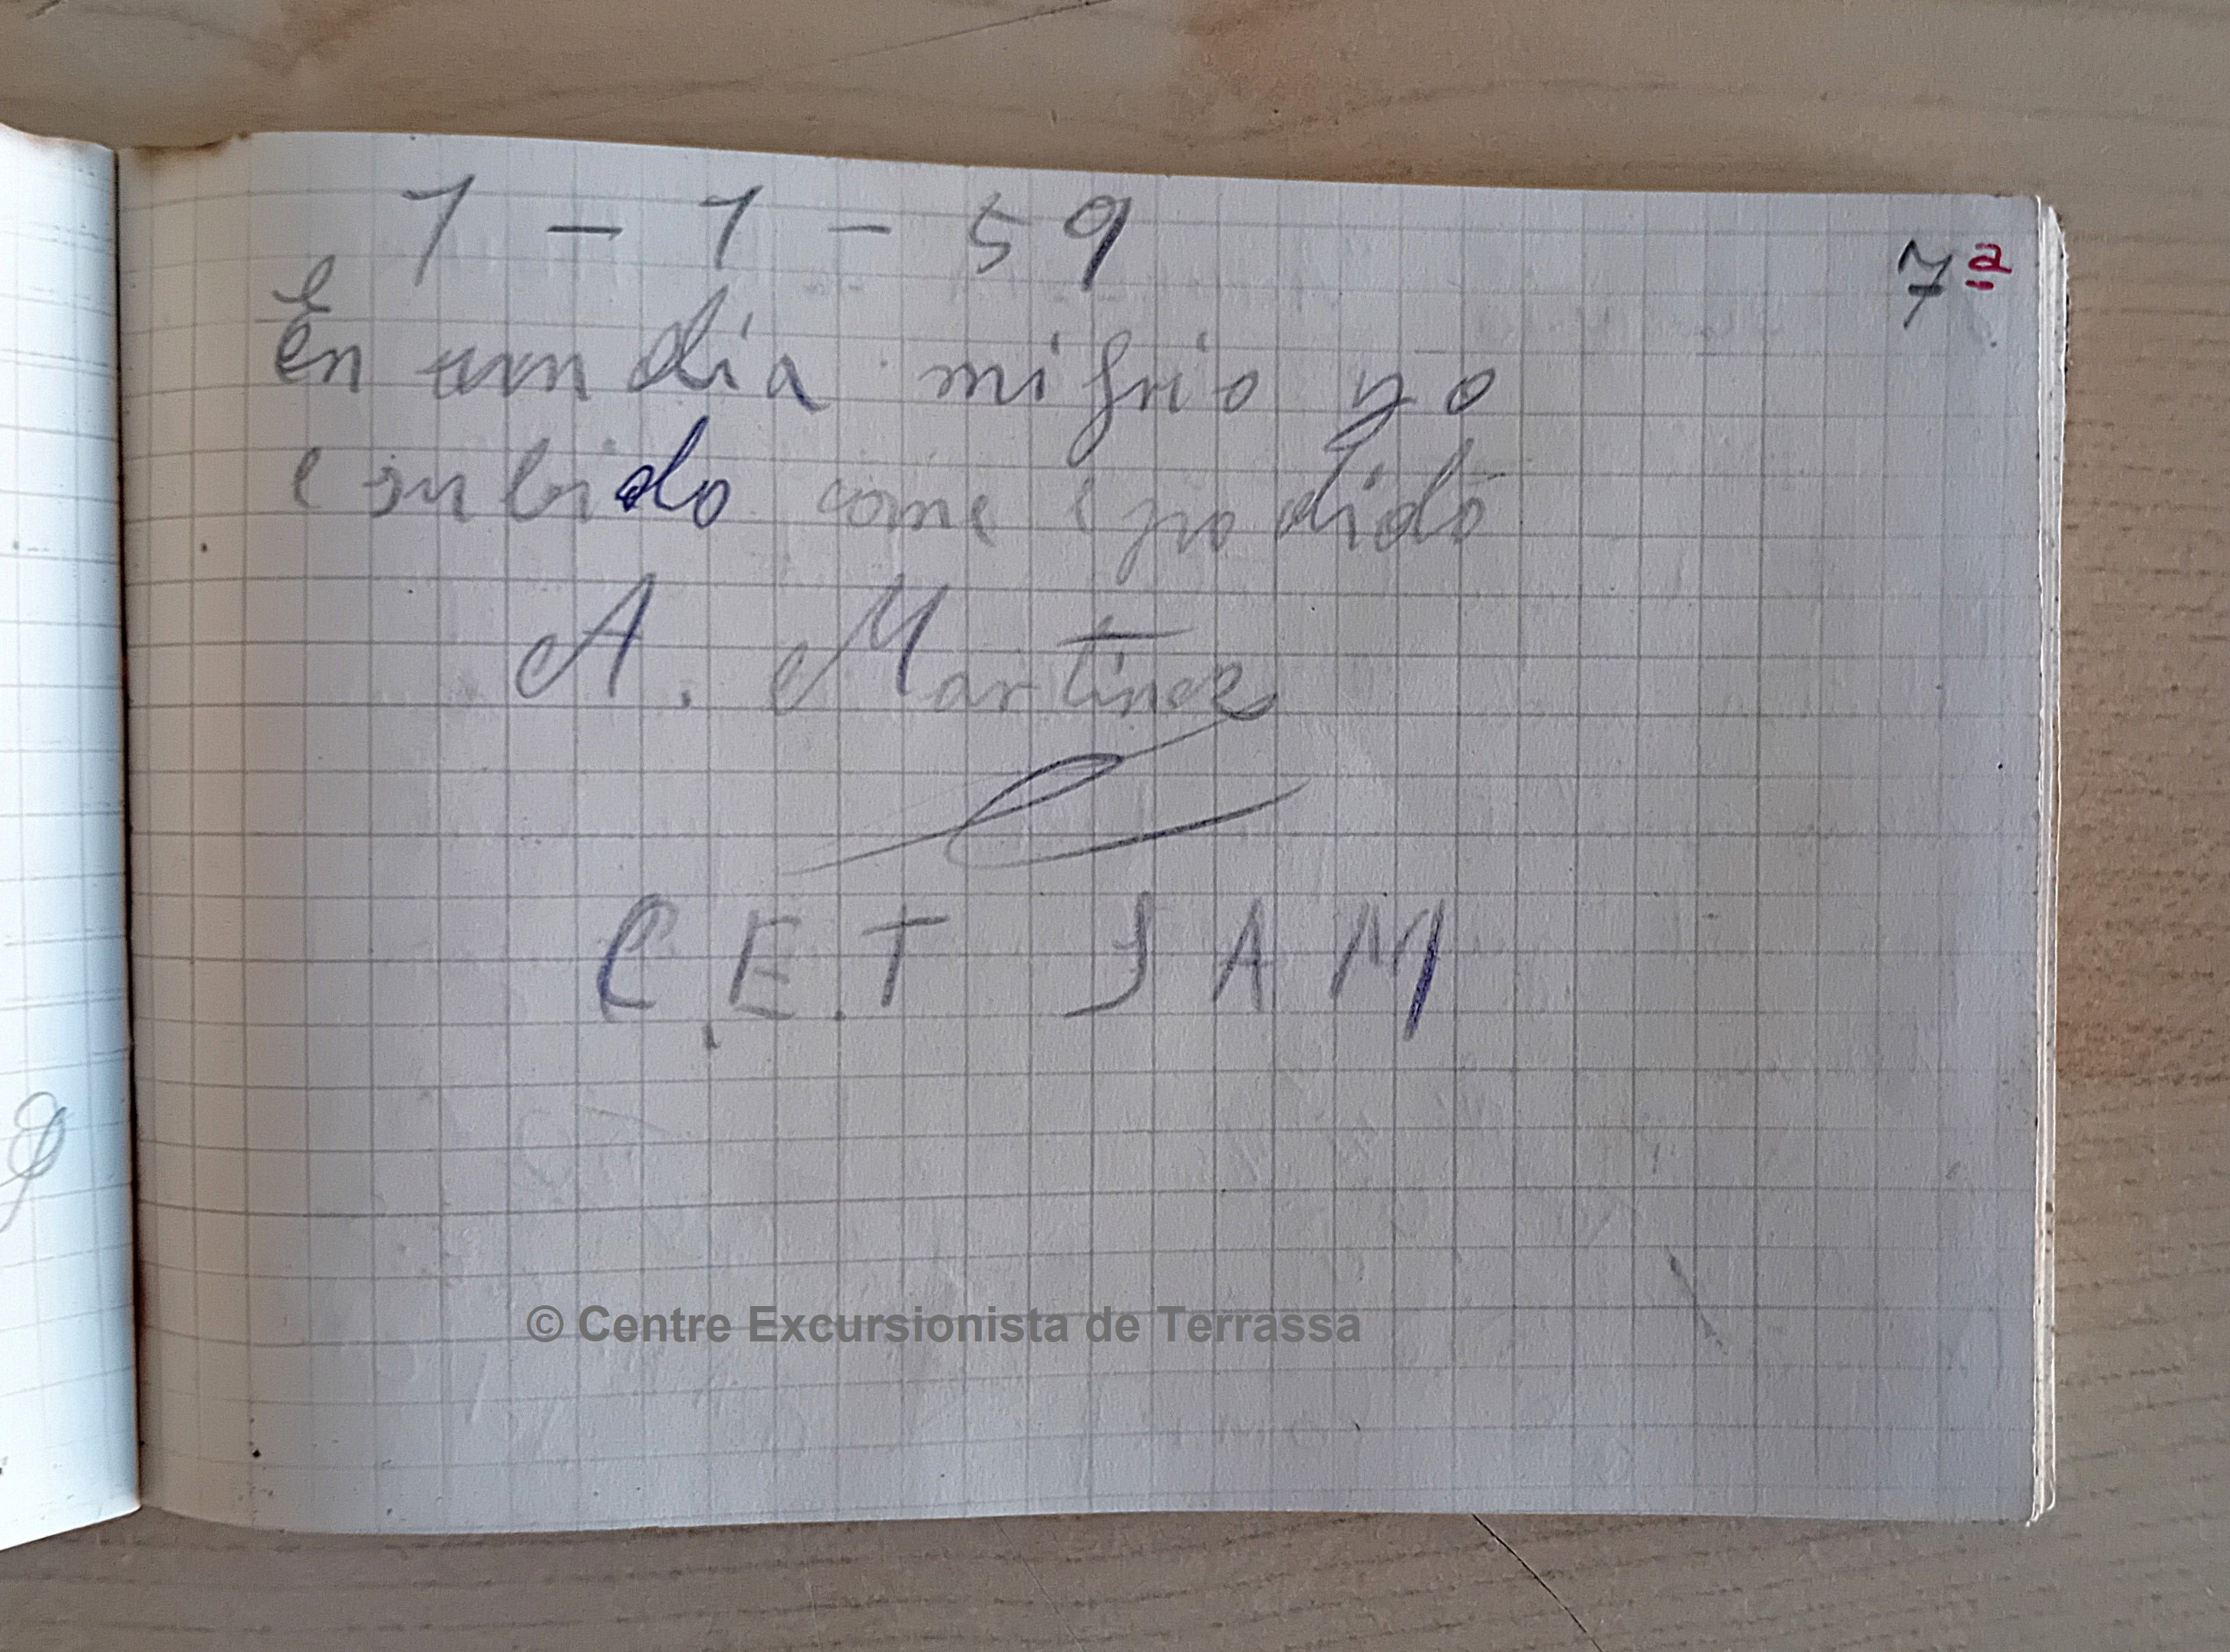 1 - 1 - 59
7ª
En un dia mi frio yo
e subido come e podido
A. Martinez
C.E.T SAM
© Centre Excursionista de Terrassa